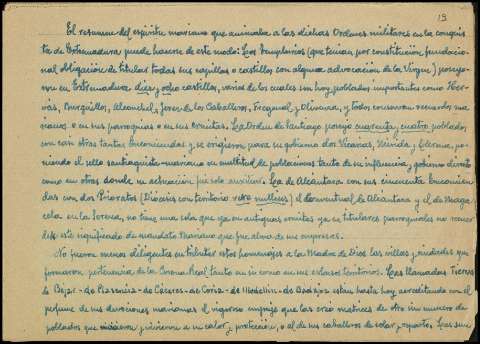 19
El resumen del espíritu mariano que animaba a las dichas Ordenes militares en la conquis
ta de Extremadura puede hacerse de este modo: Los Templarios (que tenían por constitución fundacio
nal obligación de titular todas sus capillas o castillos con alguna advocación de la Virgen) poseye-
ron en Extremadura diez y ocho castillos, varios de los cuales son hoy poblados importantes como Her-
vás, Burguillos, Alconchel, Jerez de los Caballeros, Fregenal y Olivenza, y todos conservan recuerdos ma-
rianos o en sus parroquias o en sus ermitas. La Orden de Santiago poseyó cuarenta y cuatro poblados
con casi otras tantas Encomiendas y se erigieron, para su gobierno dos Vicarías, Mérida, y Llerena, po-
niendo el sello santiaguista-mariano en multitud de poblaciones tanto de su influencia y gobierno directo
como en otras donde su actuación fué solo auxiliar. La de Alcántara con sus cincuenta Encomien-
das con dos Prioratos (Diócesis con territorio vere nullius) el conventual de Alcántara y el de Maga
cela en la Serena, no tiene una sola que ya en antiguas ermitas ya en titulares parroquiales no recuer
de este significado de mandato Mariano que fue alma de sus empresas.
No fueron menos diligentes en tributar estos homenajes a la Madre de Dios las villas y ciudades que
formaron pertenencia de la Corona Real tanto en si como en sus extensos territorios. Las llamadas Tierras
de Béjar - de Plasencia - de Cáceres - de Coria - de Medellín - de Badajoz están hasta hoy acreditando con el
perfume de sus devociones marianas el vigoroso empuje que las creó matrices de otro sin numero de
poblados que nacieron y vivieron a su calor y protección, o al de sus caballeros de solar y aparte. Las sie